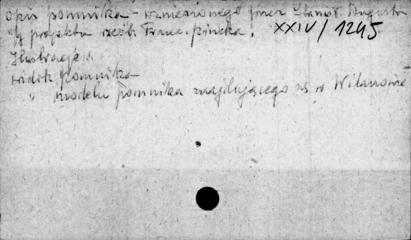 Opis pomnika - wzniesionego przez Stanisł. Augusta
wg projektu rzeźb. Franc. Pincka. XXIV/1245
Ilustracje:
widok pomnika
" modelu pomnika znajdującego się w Wilanowie